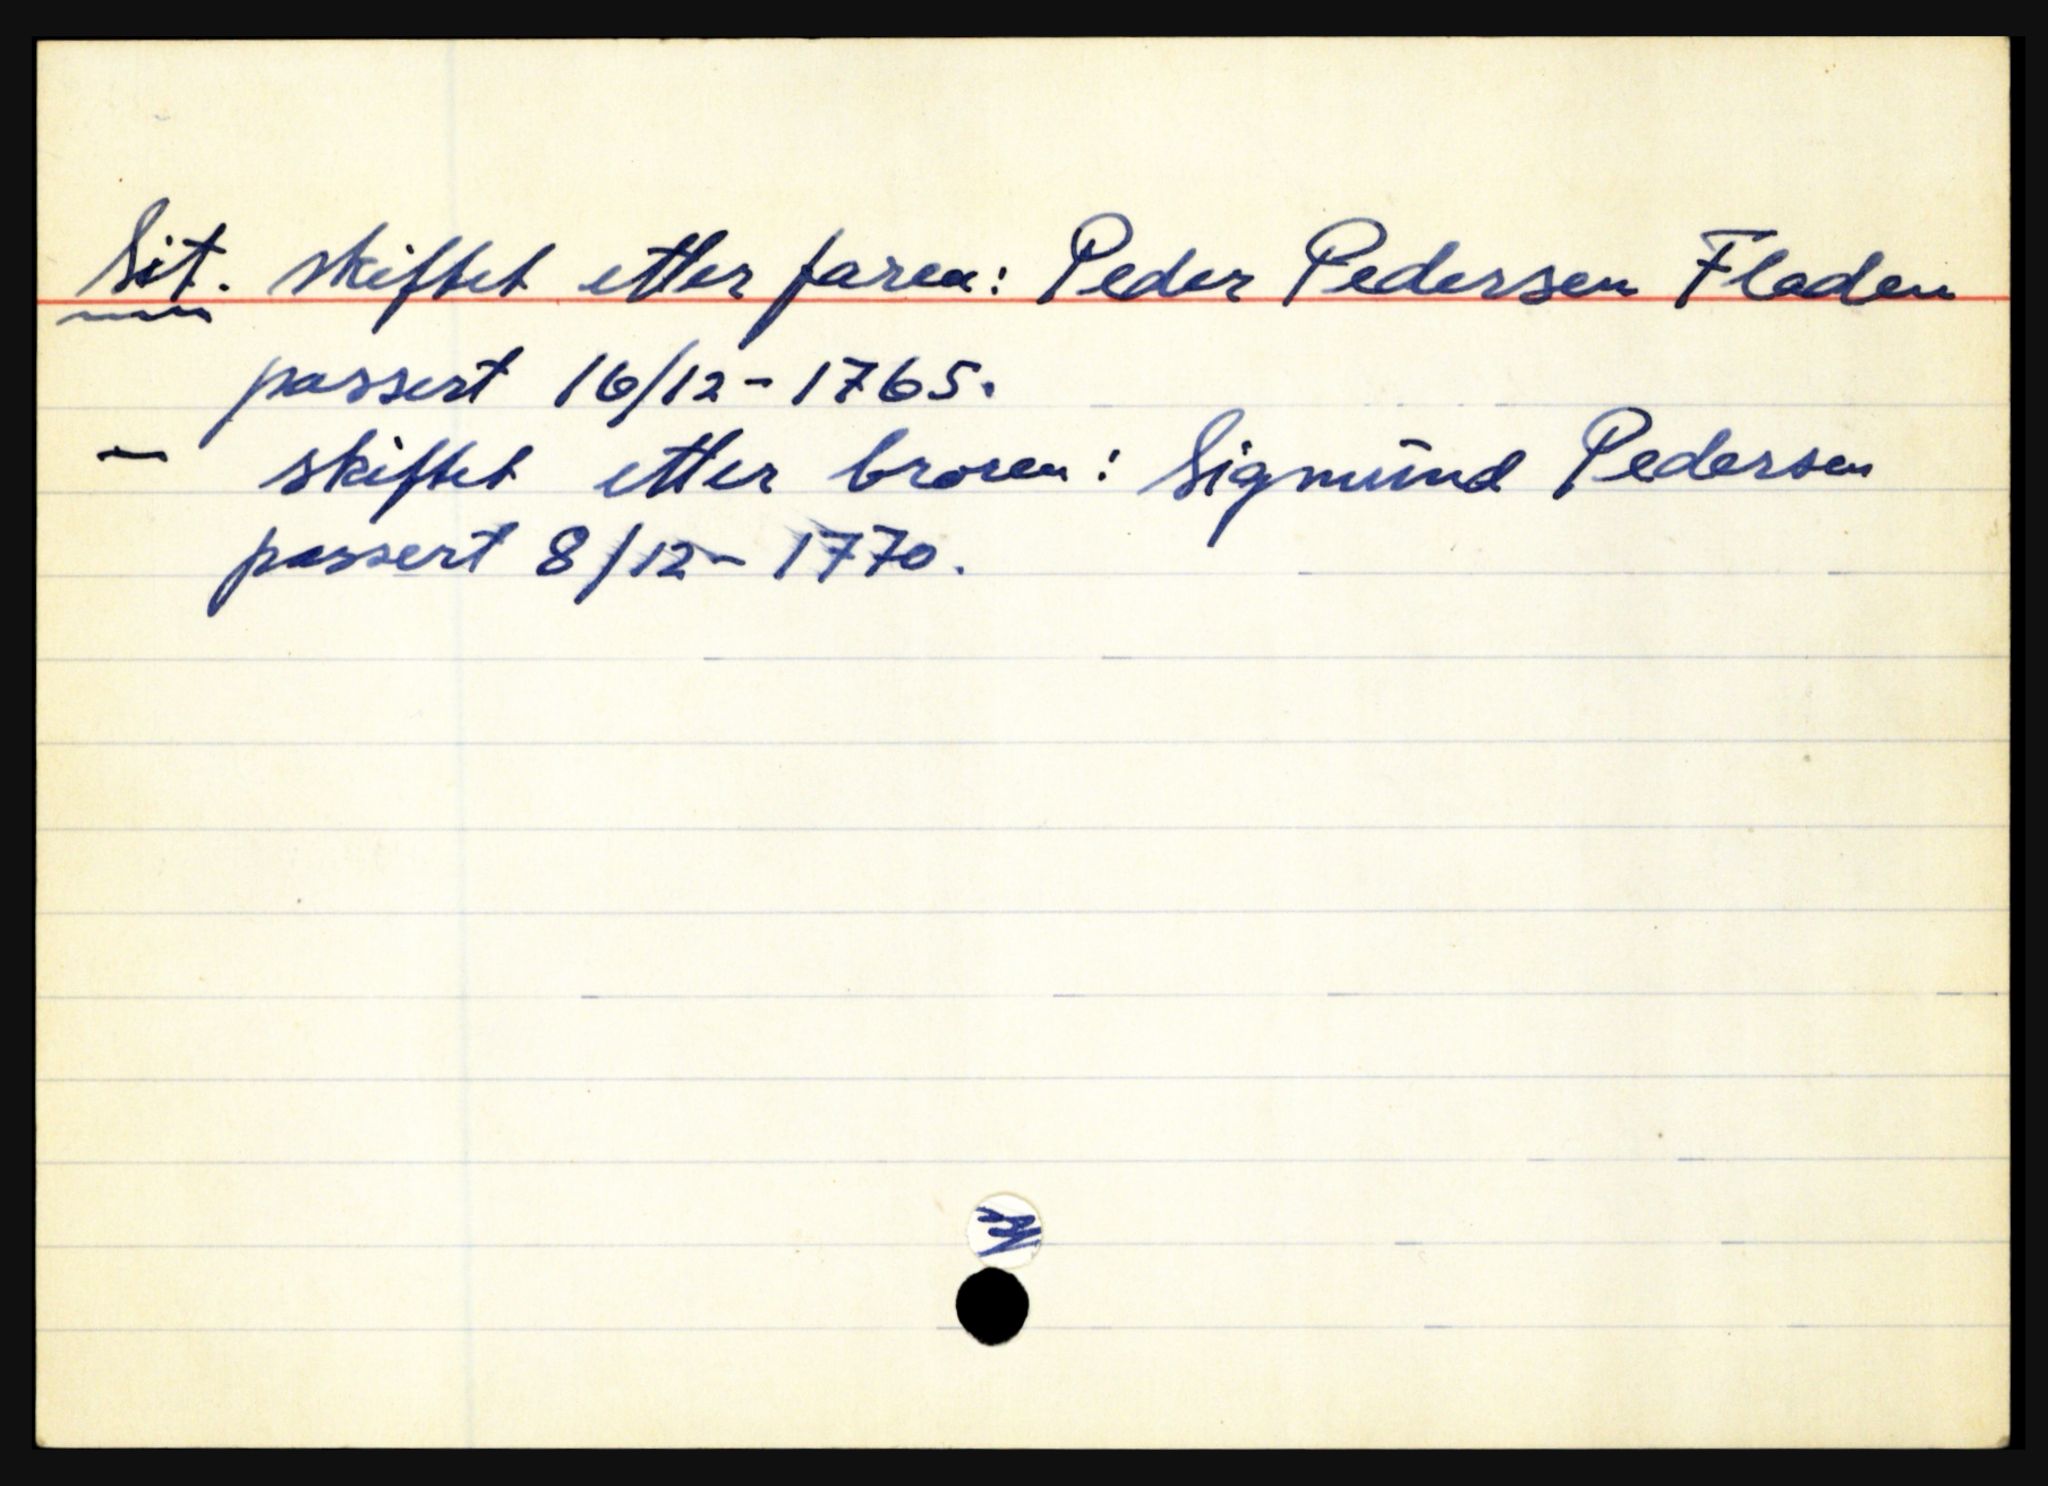 Sit. skiftet etter faren: Peder Pedersen Fladen
passert 16/12 - 1765.
— skiftet etter broren: Sigmund Pedersen
passert 8/12 - 1770.